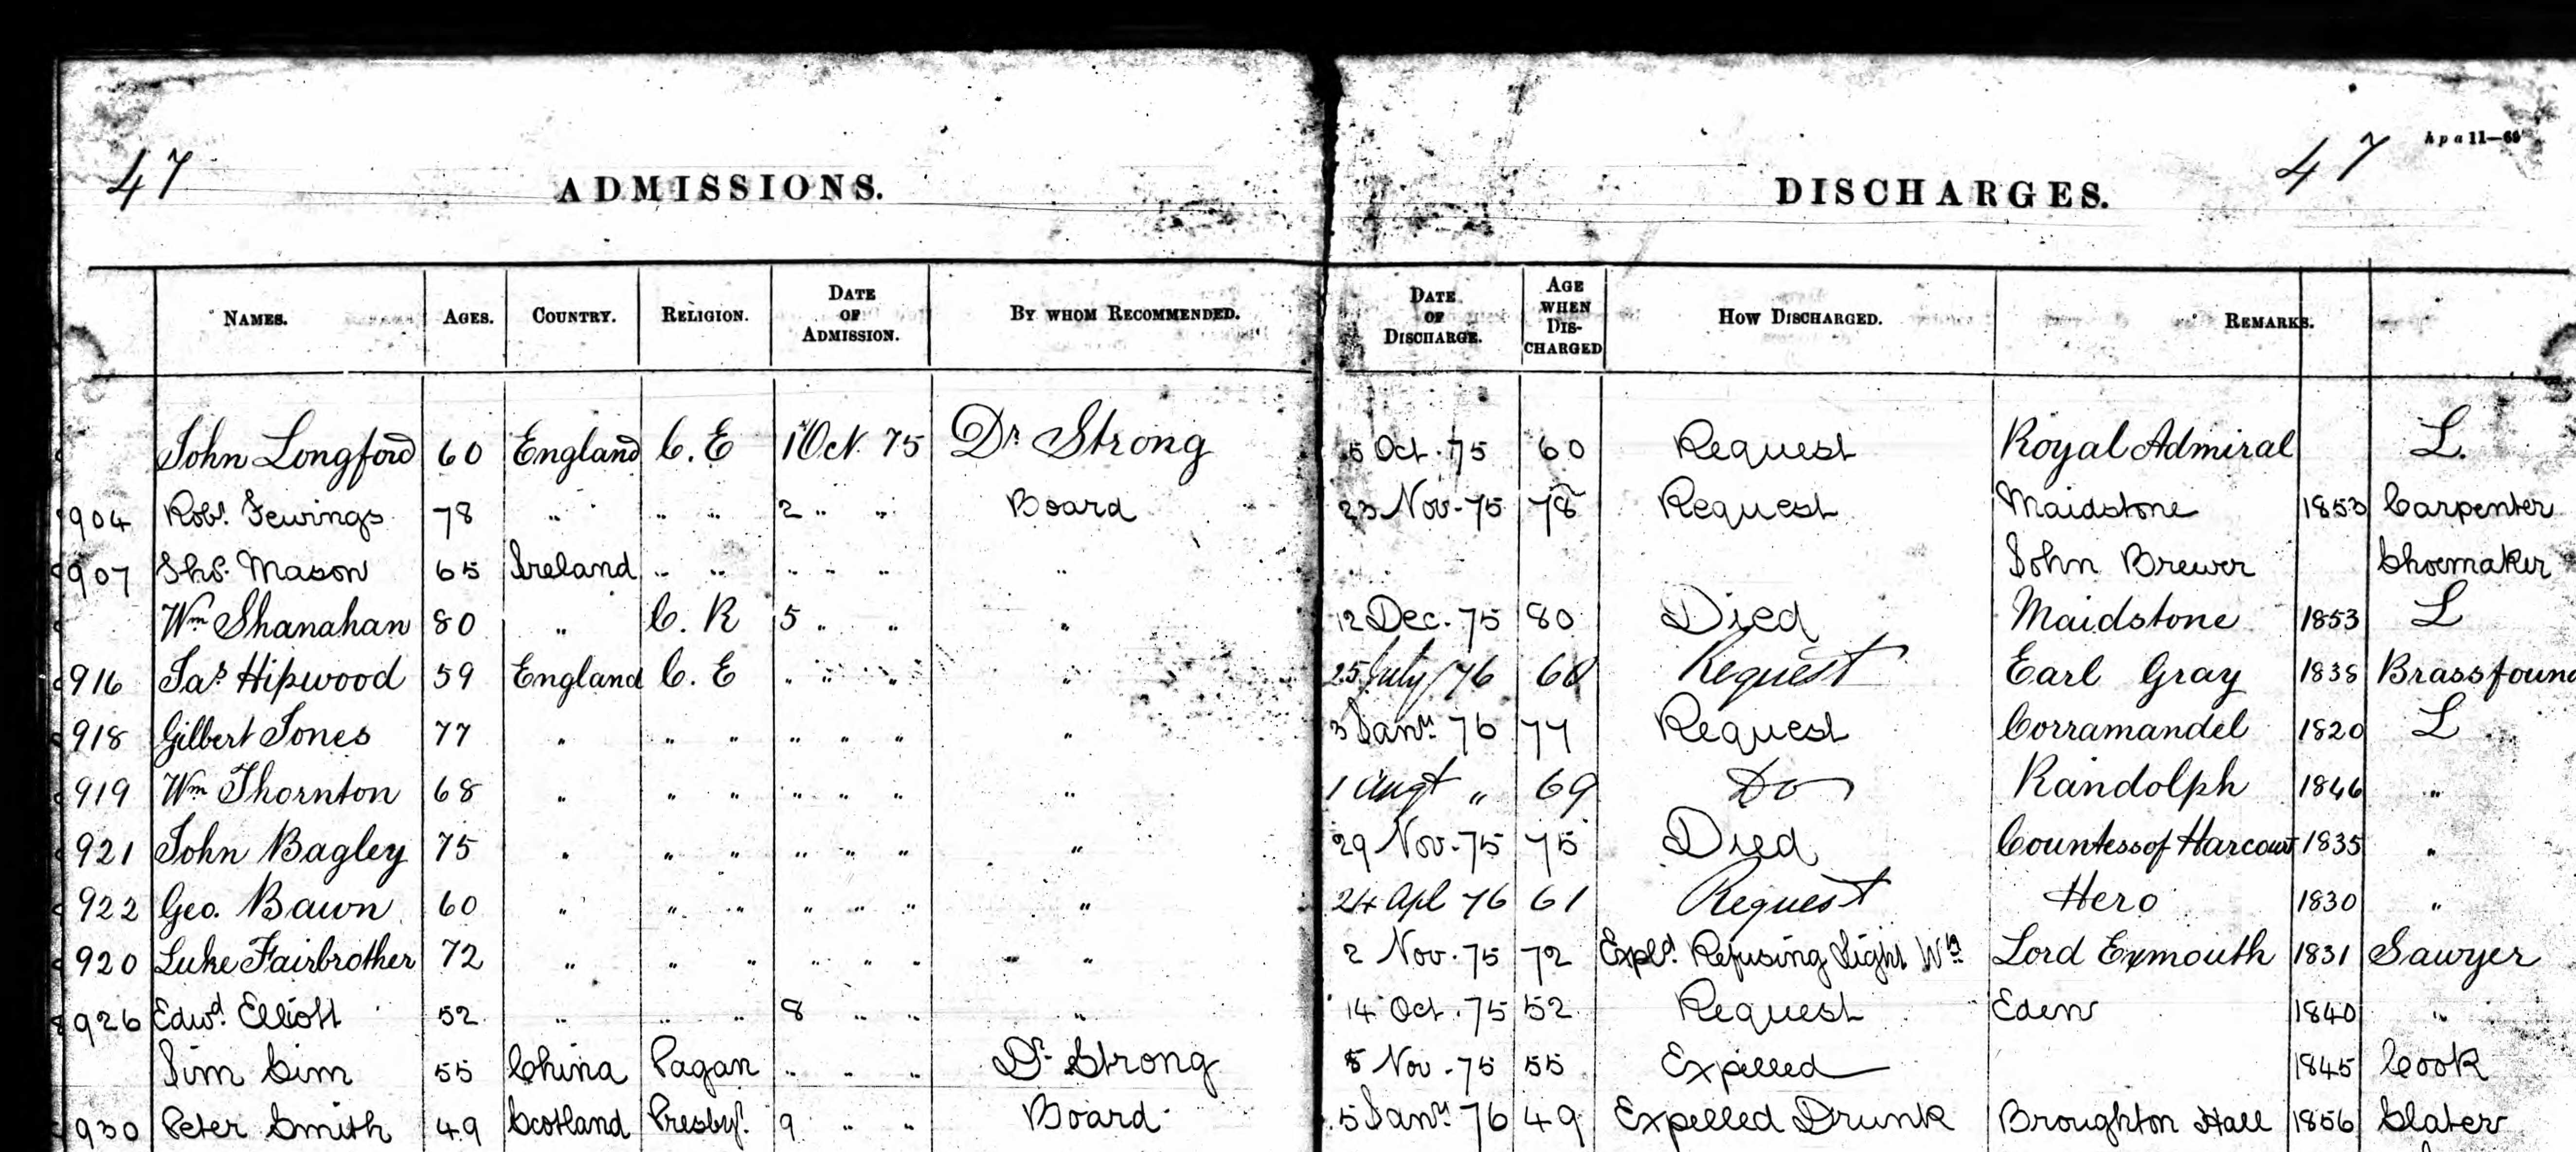 47 ADMISSIONS. DISCHARGES. 47 Apa 11—69
NAMES. AGES. COUNTRY. RELIGION. DATE OF ADMISSION. BY WHOM RECOMMENDED. DATE OF DISCHARGE. AGE WHEN DIS-CHARGED HOW DISCHARGED. REMARKS.
John Longford 60 England C. E 1 Oct 75 Dr Strong 5 Oct. 75 60 Request Royal Admiral L.
904 Robt. Fewings 78 " " " 2 " " Board 23 Nov. 75 78 Request Maidstone 1853 Carpenter
907 Thos. Mason 65 Ireland " " " " " " John Brewer Shoemaker
Wm Shanahan 80 " C. R 5 " " " 12 Dec. 75 80 Died Maidstone 1853 L
916 Jas Hipwood 59 England C. E " " " " 25 July /76 60 Request Earl Gray 1838 Brassfound
918 Gilbert Jones 77 " " " " " " " 3 Jany. 76 77 Request Corramandel 1820 L
919 Wm Thornton 68 " " " " " " " 1 Augt " 69 Do Randolph 1846 "
921 John Bagley 75 " " " " " " " 29 Nov. 75 75 Died Countess of Harcourt 1835 "
922 Geo. Bawn 60 " " " " " " " 24 Apl 76 61 Request Hero 1830 "
920 Luke Fairbrother 72 " " " " " " " 2 Nov. 75 72 Expld. Refusing Light Wk Lord Exmouth 1831 Sawyer
926 Edwd. Elliott 52 " " " 8 " " " 14 Oct. 75 52 Request Eden 1840 "
Jim Cim 55 China Pagan " " " Dr. Strong 8 Nov. 75 55 Expelled 1845 Cook
930 Peter Smith 49 Scotland Presbyn. 9 " " Board 5 Jany. 76 49 Expelled Drunk Broughton Hall 1856 Slater